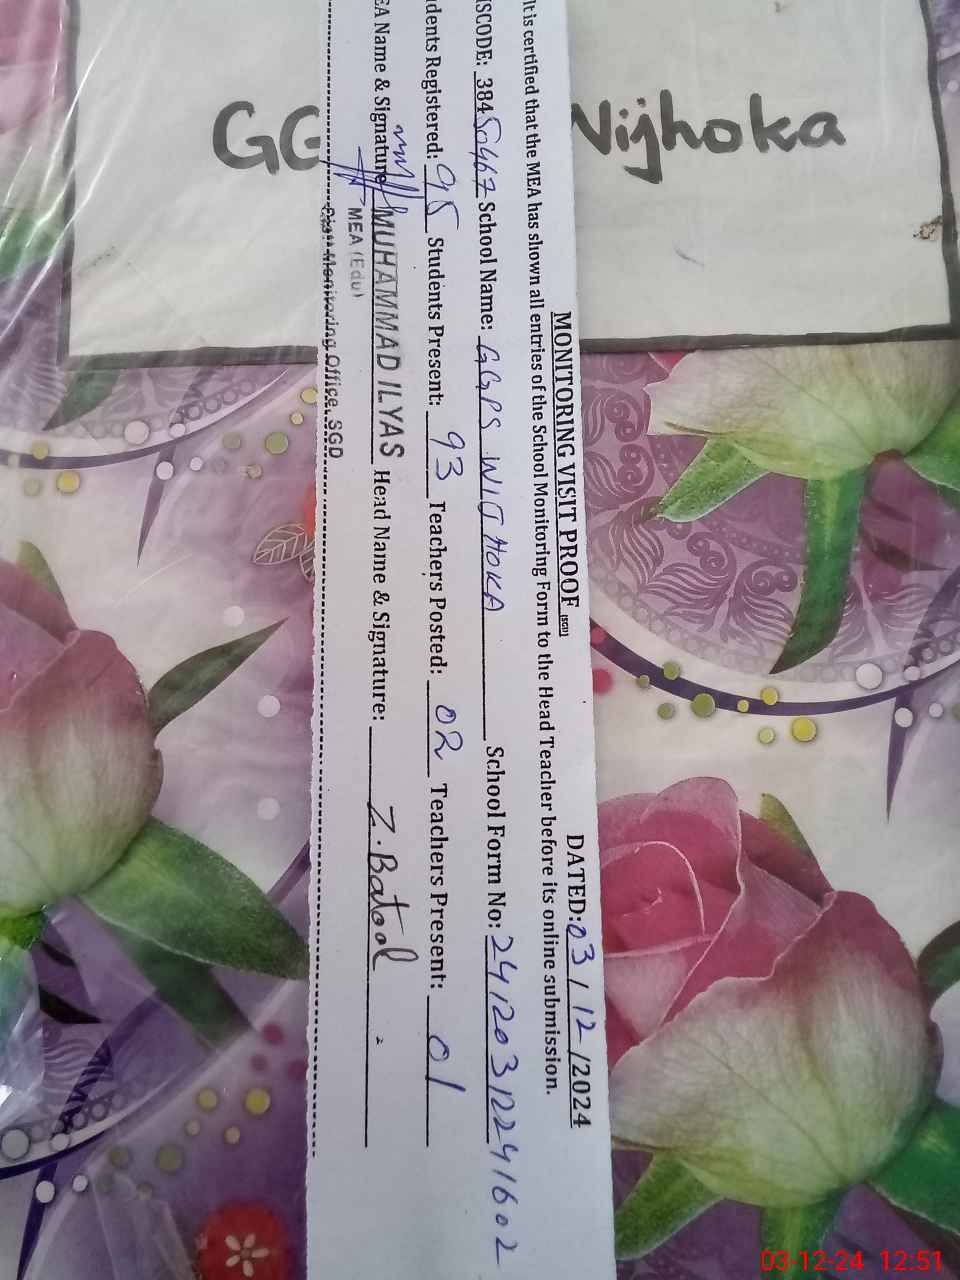 GG Nijhoka
MONITORING VISIT PROOF (SGD) DATED: 03/12/2024
It is certified that the MEA has shown all entries of the School Monitoring Form to the Head Teacher before its online submission.
ISCODE: 38450467 School Name: GGPS WIJHOKA School Form No: 24120312241602
dents Registered: 95 Students Present: 93 Teachers Posted: 02 Teachers Present: 01
EA Name & Signature MUHAMMAD ILYAS Head Name & Signature: Z. Batool
MEA (Edu)
Distt Monitoring Office, SGD
03-12-24 12:51